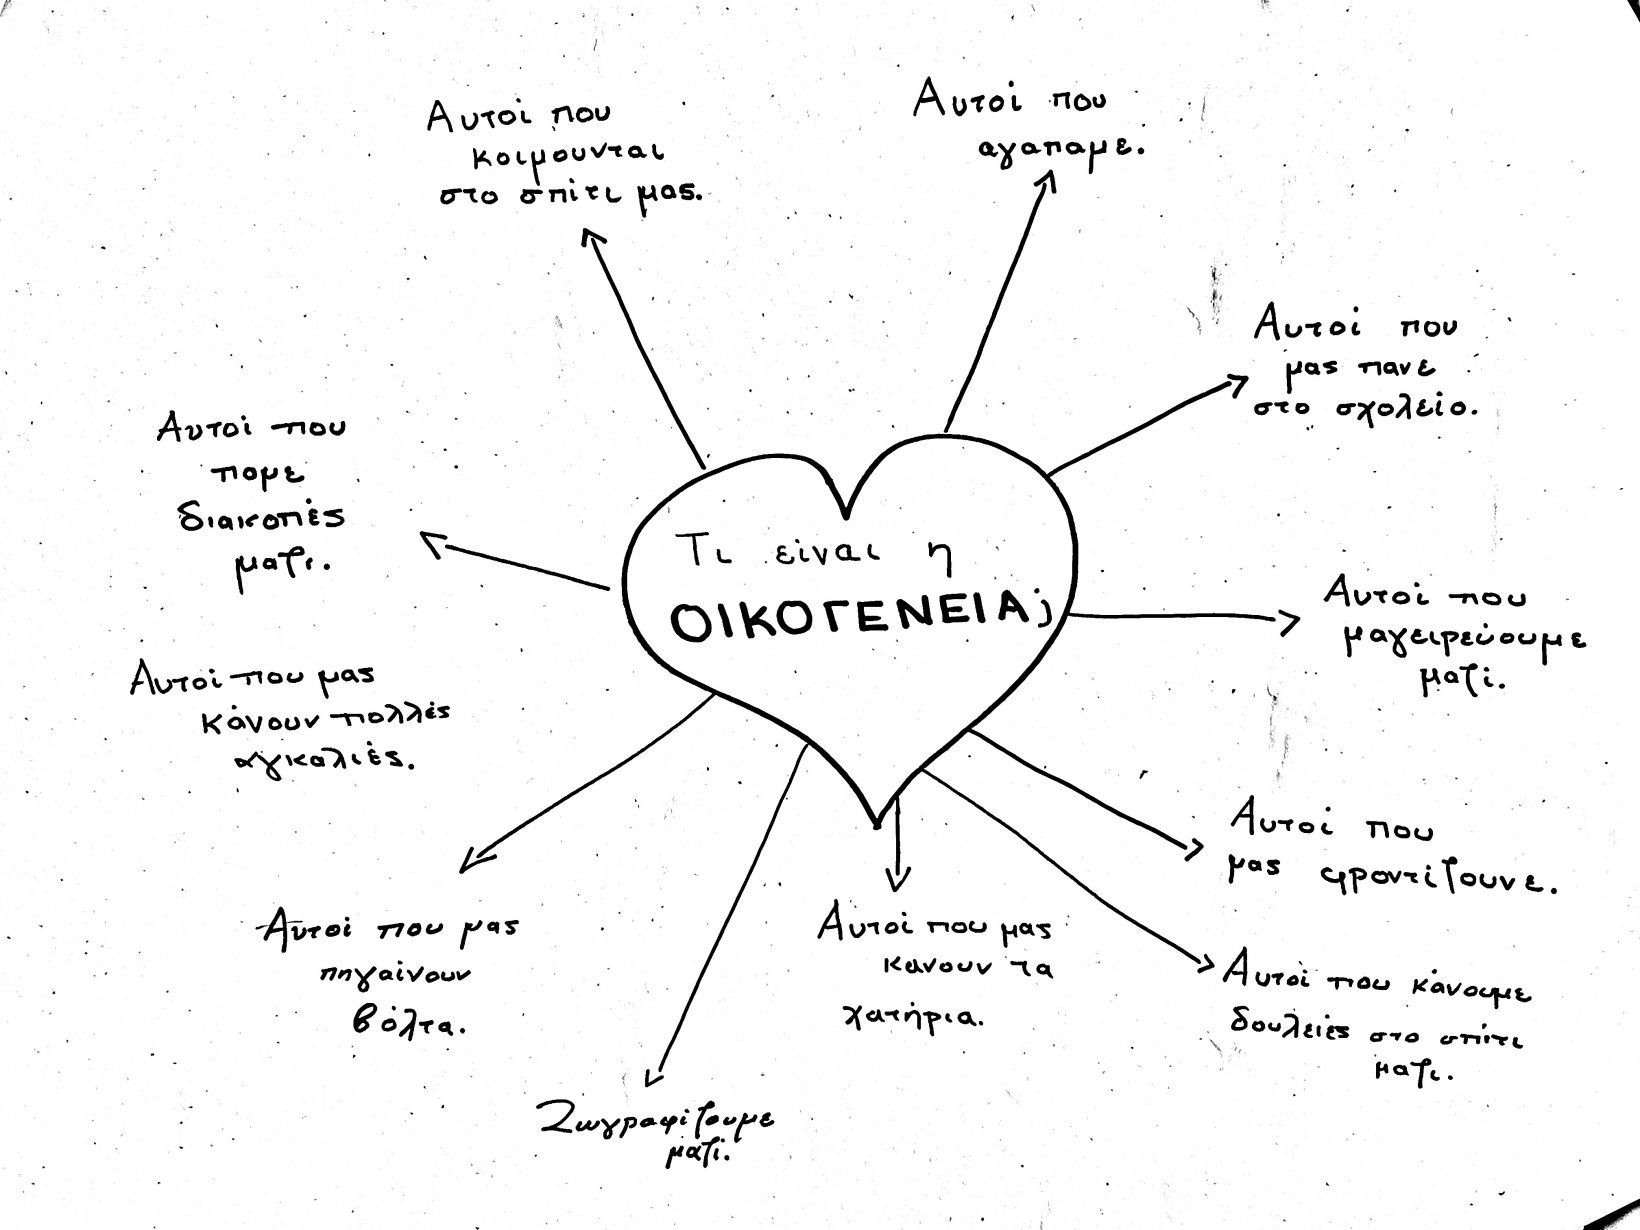 Αυτοί που
κοιμουνται
στο σπίτι μας.
Αυτοί που
αγαπαμε.
Αυτοί που
μας πανε
στο σχολείο.
Αυτοί που
πομε
διακοπές
μαζι.
Τι είναι η
ΟΙΚΟΓΕΝΕΙΑ;
Αυτοί που
μαγειρεύουμε
μαζί.
Αυτοί που μας
κάνουν πολλές
αγκαλιές.
Αυτοί που
μας φροντίζουνε.
Αυτοί που μας
πηγαίνουν
βόλτα.
Αυτοί που μας
κανουν τα
χατήρια.
Αυτοί που κάνουμε
δουλειές στο σπίτι
μαζι.
Ζωγραφίζουμε
μαζί.